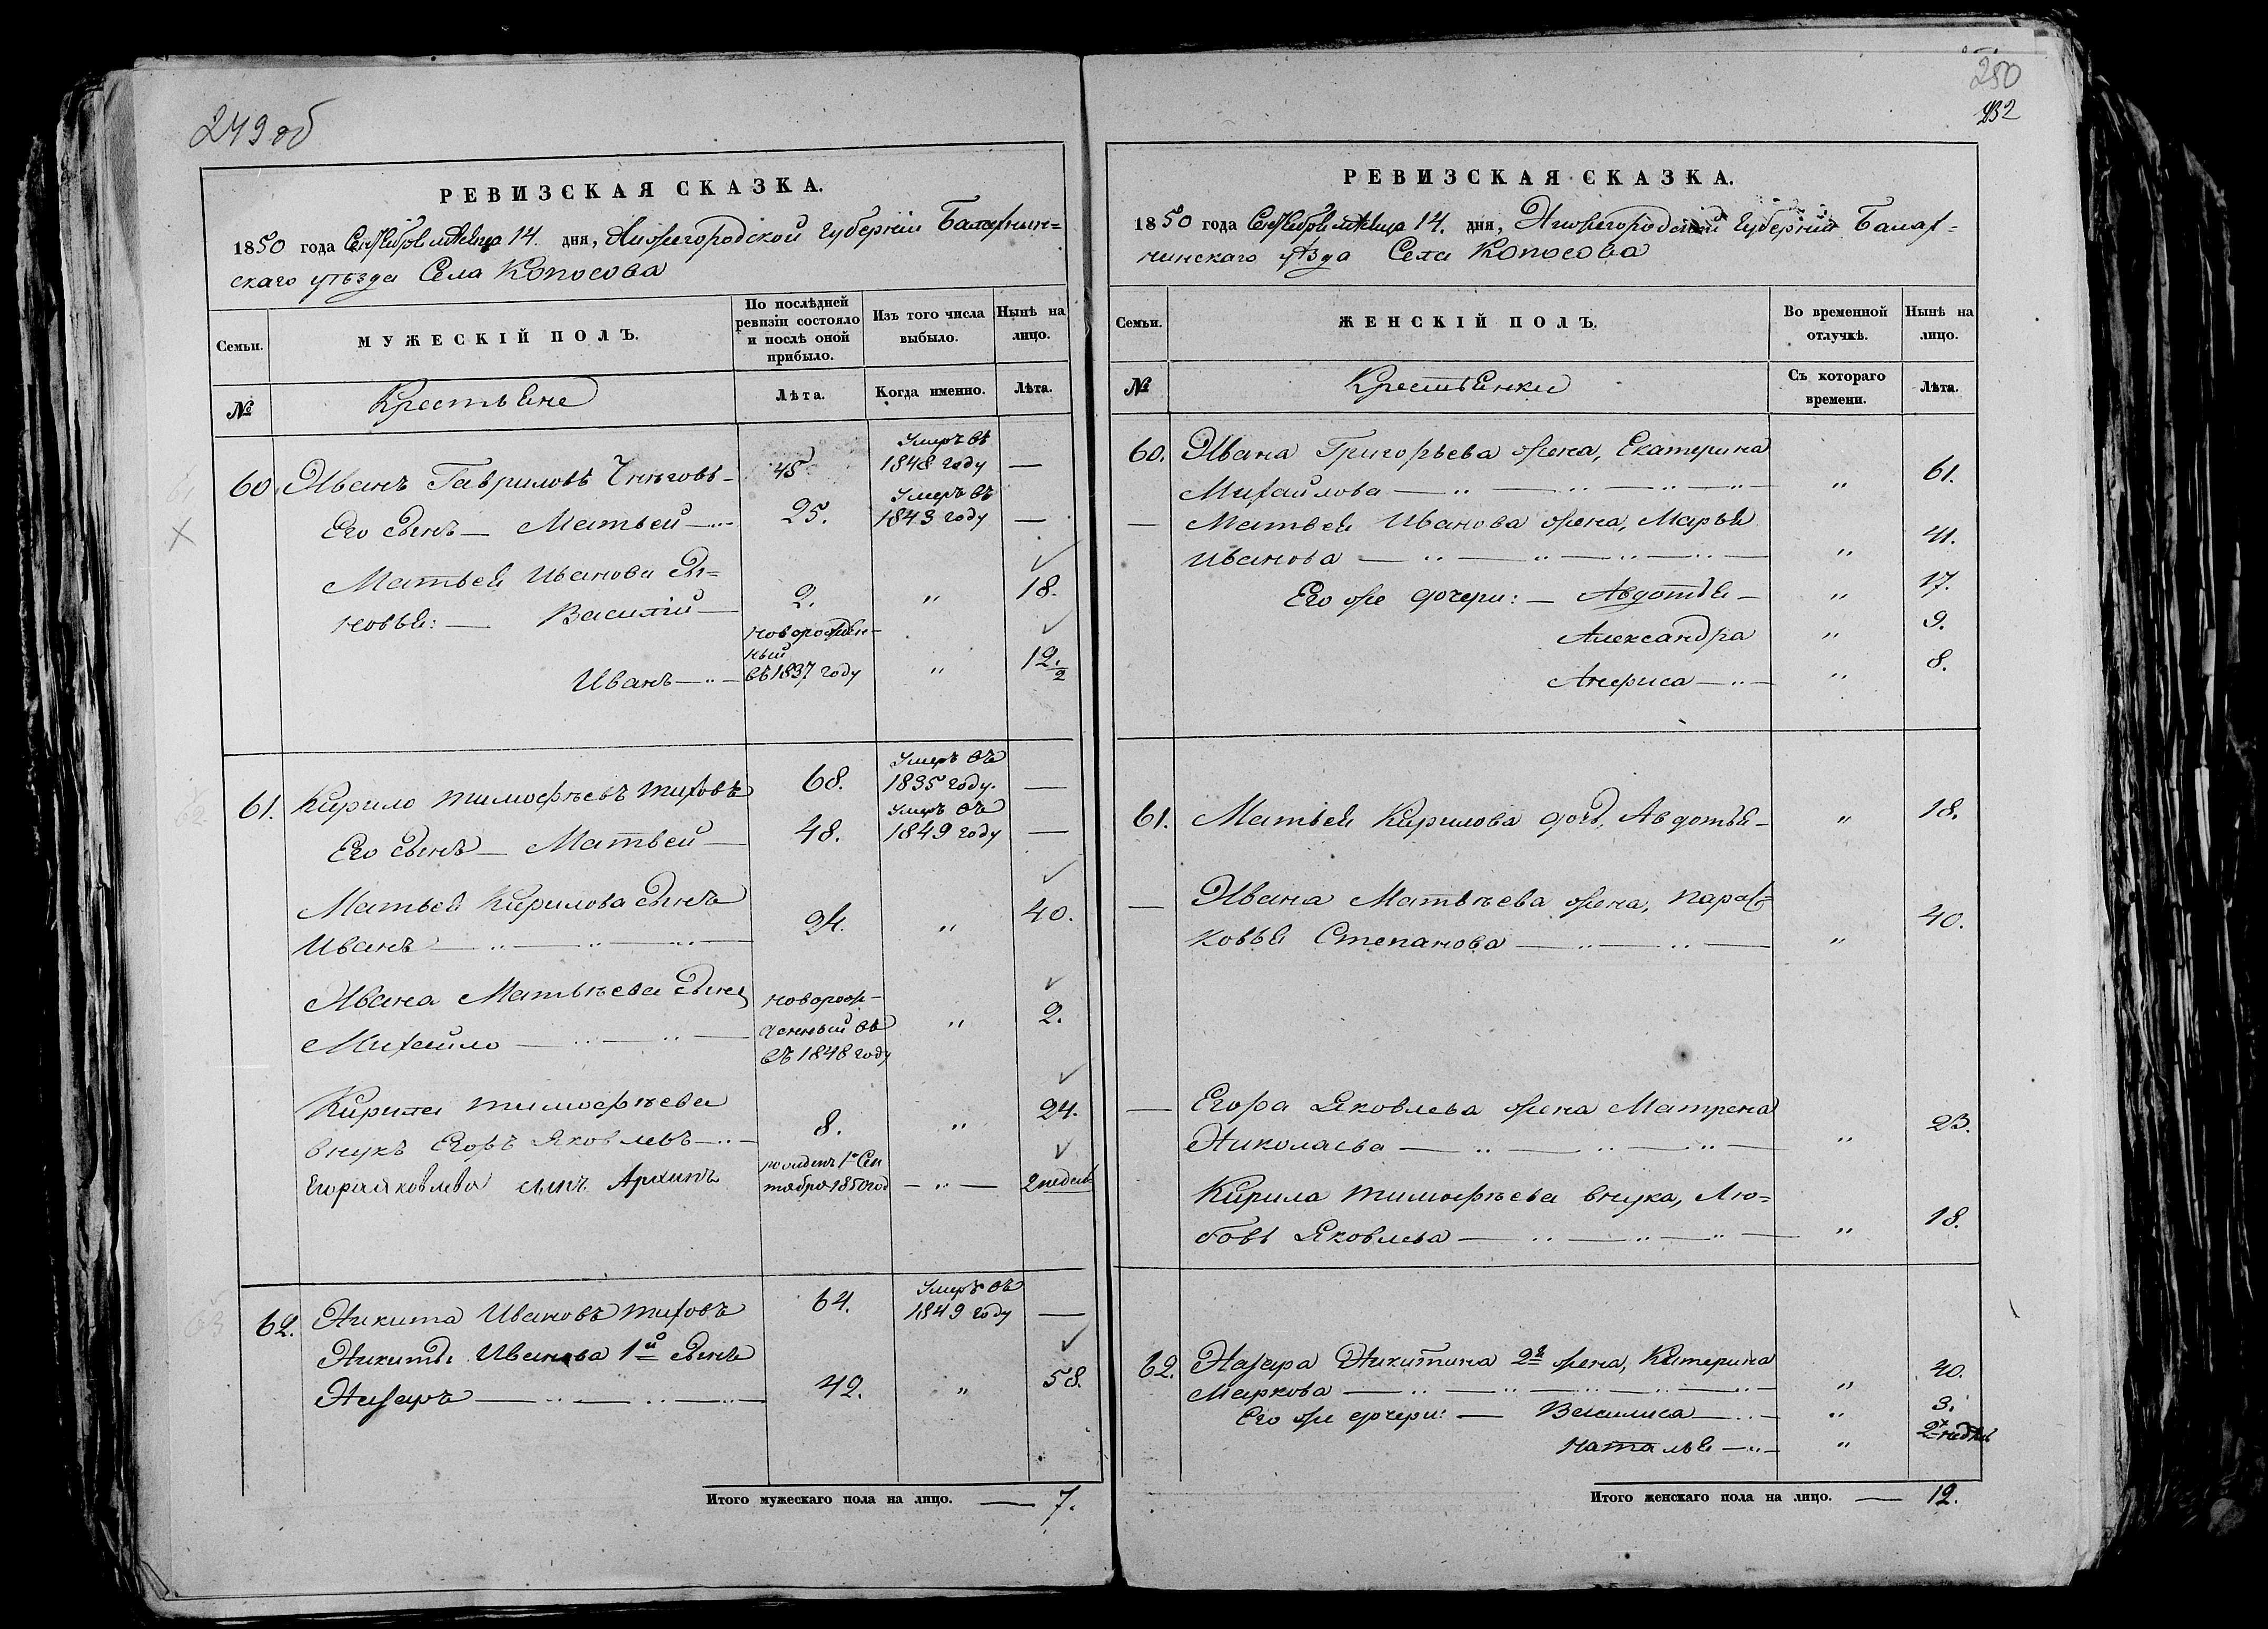 249 об
РЕВИЗСКАЯ СКАЗКА.
1850 года Сентября мѣсяца 14. дня, Нижегородской Губерніи Балахнин=
скаго уѣзда Села Копосова
Семьи.
МУЖЕСКІЙ ПОЛЪ.
По послѣдней ревизіи состояло и послѣ оной прибыло.
Изъ того числа выбыло.
Нынѣ на лицо.
№
Крестьяне
Лѣта.
Когда именно.
Лѣта.
60. Иванъ Гавриловъ 45. Умеръ въ 1848 году —
Его сынъ — Матвей 25. Умеръ въ 1843 году —
Матвея Иванова сы=
новья: — Василій — 2. " 18.
Иванъ — новорожден-
ный
въ 1837 году " 12 1/2
61. Кирило Тимофѣевъ Титовъ 68. Умеръ въ 1835 году. —
Его сынъ — Матвей — 48. Умеръ въ 1849 году —
Матвея Кирилова сынъ
Иванъ 24. " 40.
Ивана Матвѣева сынъ новорож-
Михайло — денный въ " 2.
въ 1848 году
Кирила Тимофѣева
внукъ Егоръ Яковлевъ 8. " 24.
Егора Яковлева сынъ Архипъ рожденъ 1го Сен
тября 1850 год — " — 2 недель
62. Никита Ивановъ Титовъ 64. Умеръ въ 1849 году —
Никиты Иванова 1й сынъ
Назаръ 42. " 58.
Итого мужескаго пола на лицо. — 7.
250
232
РЕВИЗСКАЯ СКАЗКА.
1850 года Сентября мѣсяца 14. дня, Нижегородской Губерніи Балах=
нинскаго уѣзда Села Копосова
Семьи.
ЖЕНСКІЙ ПОЛЪ.
Во временной отлучкѣ.
Нынѣ на лицо.
№
Крестьянки
Съ котораго времени.
Лѣта.
60. Ивана Григорьева жена, Екатерина
Михайлова " 61.
— Матвея Иванова жена, Марья
Иванова " 41.
Его же дочери: — Авдотья — " 17.
Александра " 9.
Анфиса " 8.
61. Матвея Кирилова дочь, Авдотья — " 18.
— Ивана Матвѣева жена, Парас=
ковья Степанова " 40.
— Егора Яковлева жена Матрена
Николаева " 23.
Кирила Тимофѣева внука, Лю=
бовь Яковлева " 18.
62. Назара Никитина 2я жена, Катерина
Маркова " 40.
Его же дочери: — Василиса " 3.
Наталья " 2 недѣль
Итого женскаго пола на лицо. — 12.